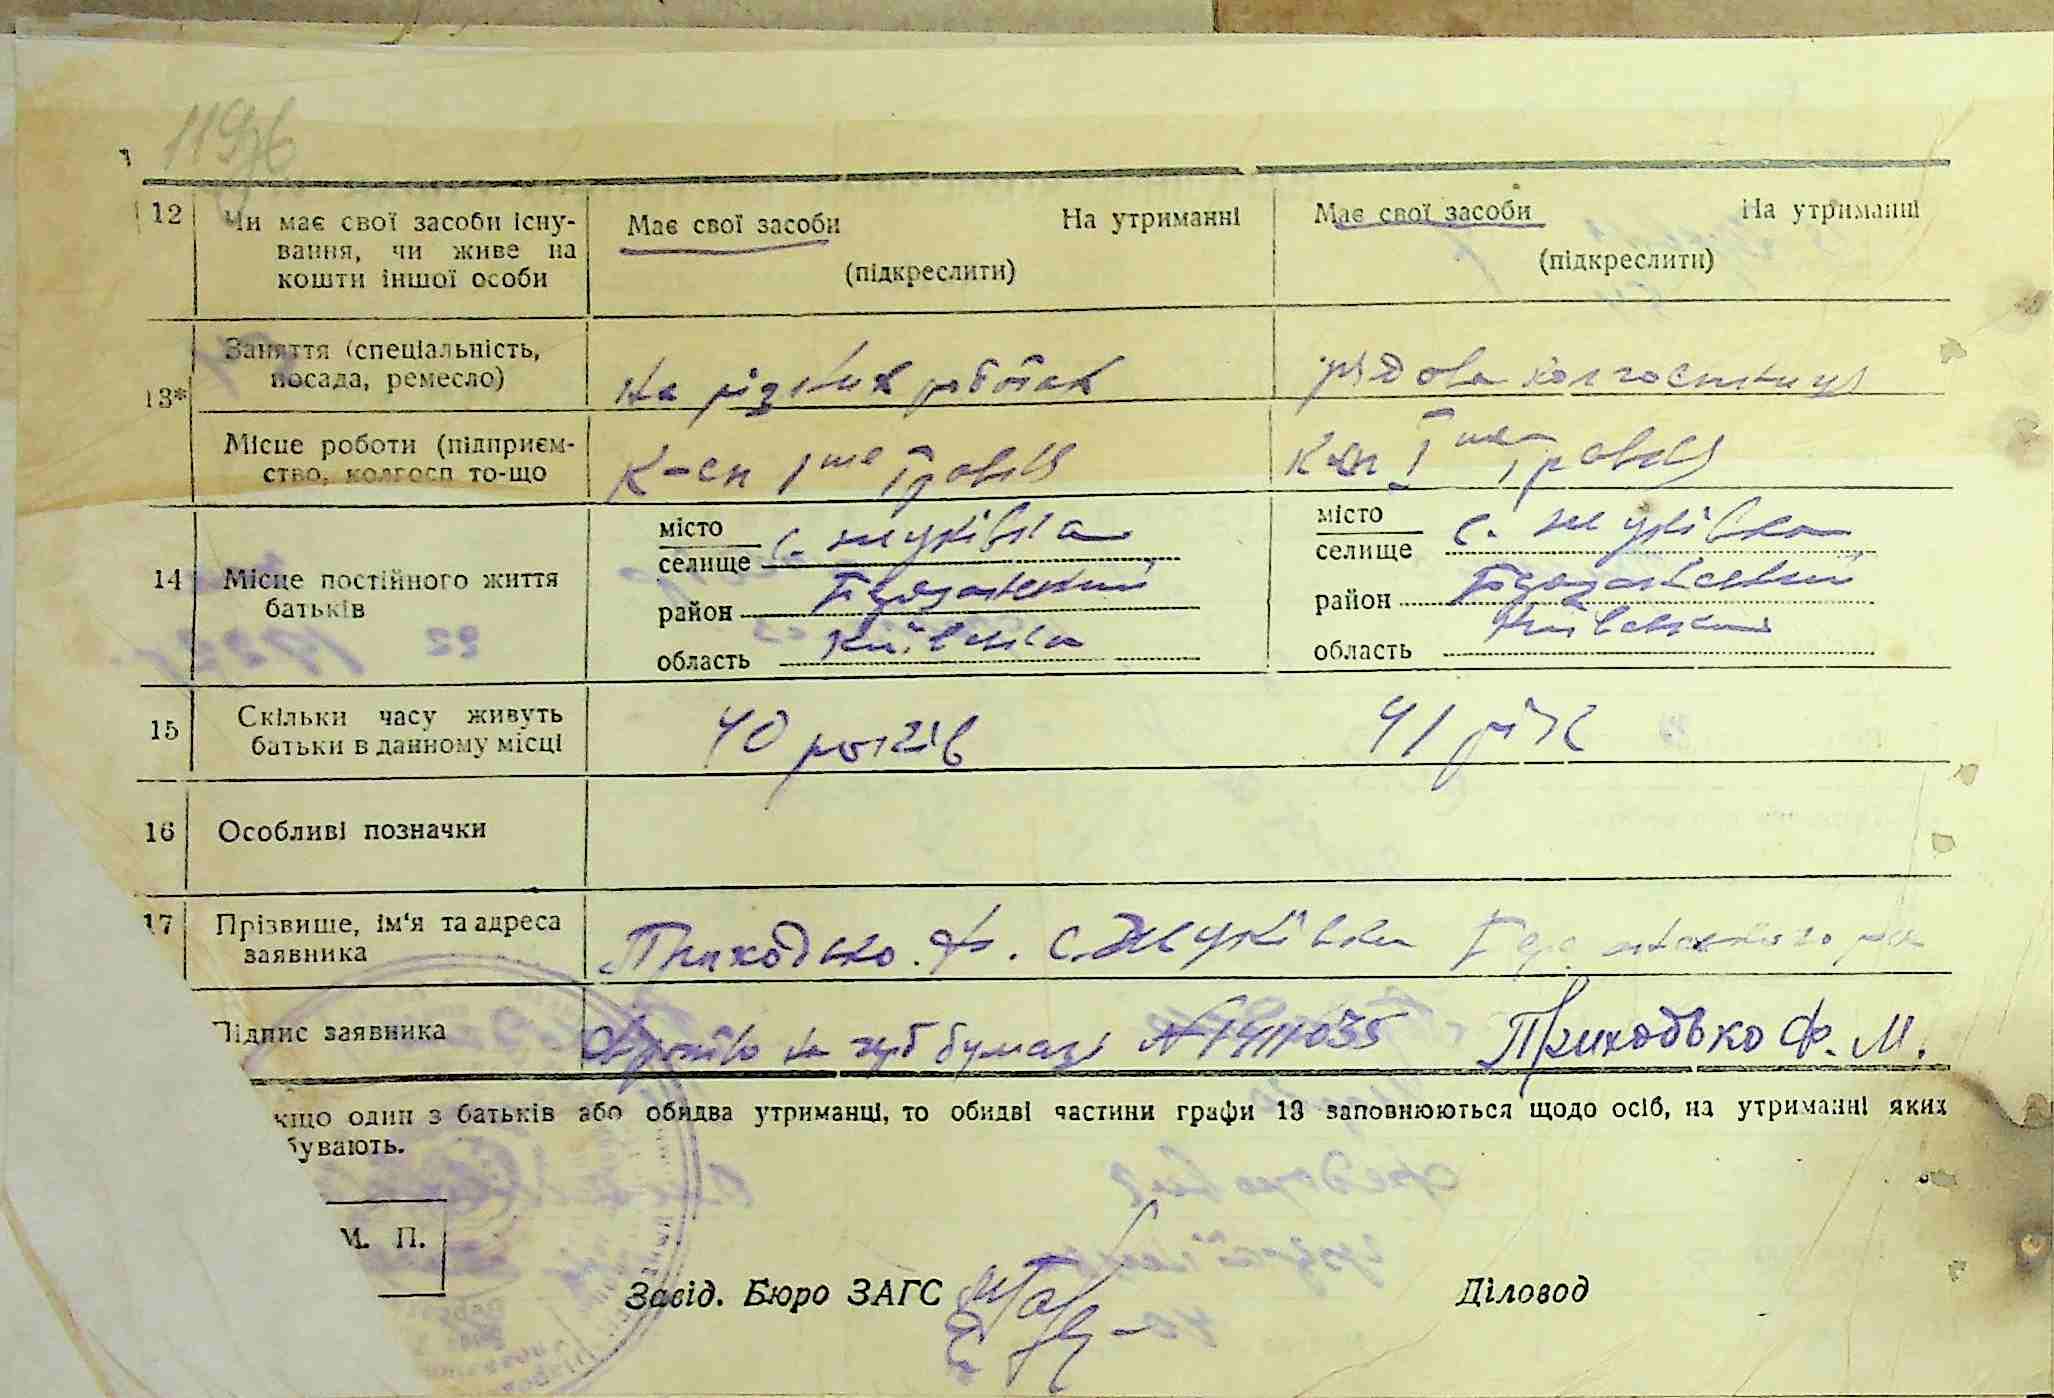 1196
12 Чи має свої засоби існу- Має свої засоби На утриманні Має свої засоби На утриманні
вання, чи живе на (підкреслити) (підкреслити)
кошти іншої особи
Заняття (спеціальність,
13* посада, ремесло) на різних роботах рядова колгоспниця
Місце роботи (підприєм-
ство, колгосп то-що к-сп 1ше Травня к-сп 1ше Травня
місто с. Жуківка місто с. Жуківка
селище селище
14 Місце постійного життя
батьків район район
область Київська область Київська
15 Скільки часу живуть
батьки в данному місці 40 років 41 рік
16 Особливі позначки
17 Прізвище, ім'я та адреса
заявника Приходько. Ф. с. Жуківка
Підпис заявника на бумазі № 1411035 Приходько Ф. М.
кщо один з батьків або обидва утриманці, то обидві частини графи 13 заповнюються щодо осіб, на утриманні яких
бувають.
М. П.
Завід. Бюро ЗАГС Діловод